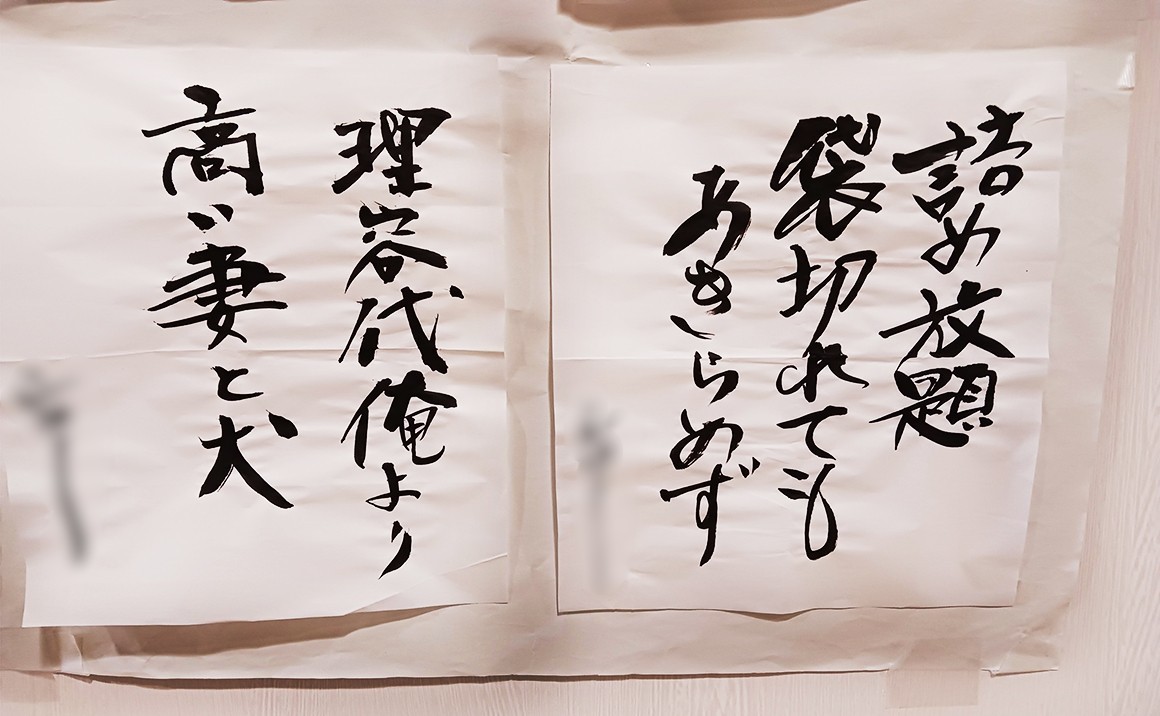 詰め放題
袋切れても
あきらめず
理容代俺より
高い妻と犬